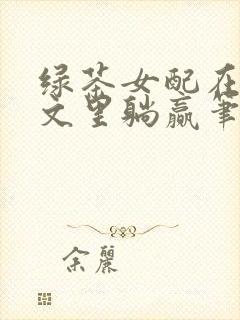 绿茶女配在
文里躺赢笔
余丽